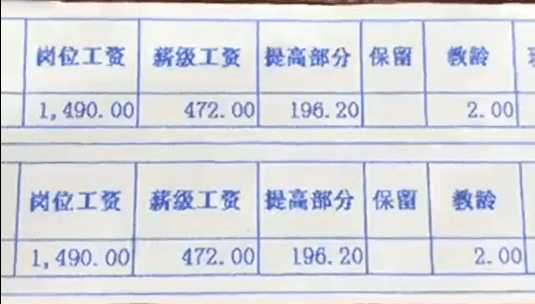 岗位工资 薪级工资 提高部分 保留 教龄
1,490.00 472.00 196.20 2.00
岗位工资 薪级工资 提高部分 保留 教龄
1,490.00 472.00 196.20 2.00